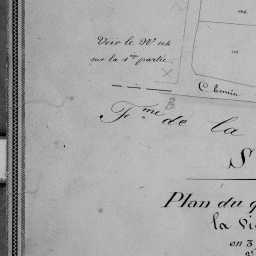 Voir le N.º
sur la 1ère partie.
Chemin
B
Fme de la
S
Plan du
la
en 3